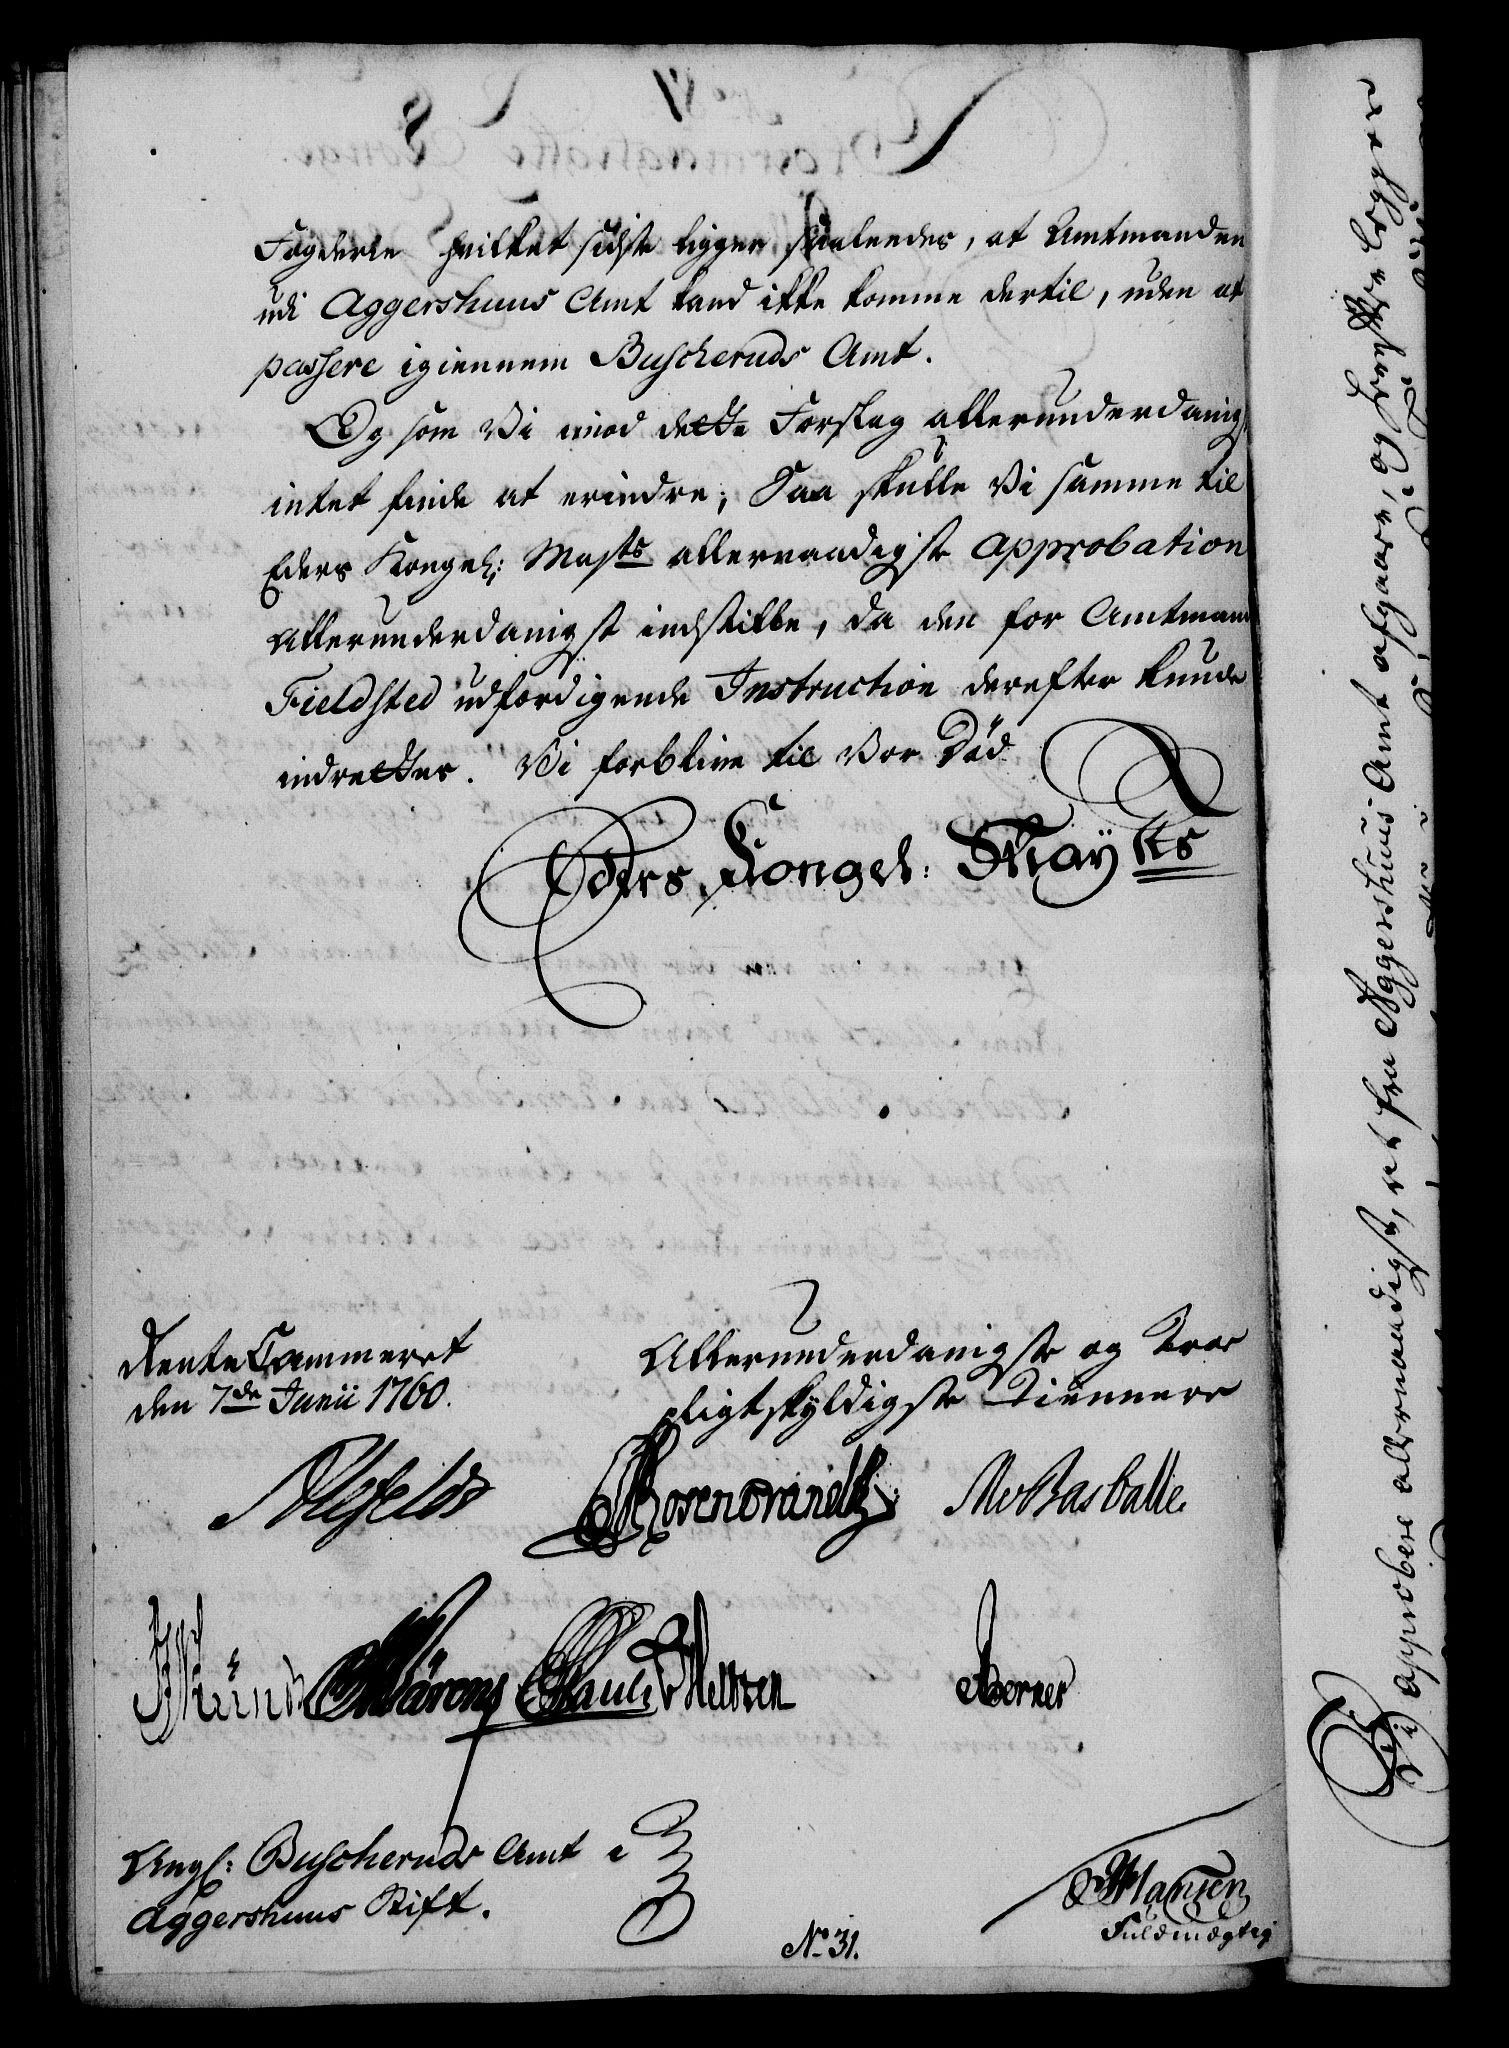 Fogderie hvilket sidste ligger saaleedes, at Amtmanden
udi Aggershuus Amt kand ikke komme dertil, uden at
passere igiennem Buscheruds Amt.
Og som Vi imod dette Forslag allerunderdanigst
intet finde at erindre; Saa skulle Vi samme til
Eders Kongel: Maysts allernaadigste Approbation
Allerunderdanigst indstille, da den for Amtmand
Fieldsted udfærdigende Instruction derefter kunde
indrettes. Vi forblive til Vor Död
Eders Kongel: Maytts
Rente Cammeret
den 7de Junii 1760.
Allerunderdanigste og Troe
pligtskyldigste Tiennere
Ahlefeldt
Rosencrandtz
Bærens
Berner
Ang: Buscheruds Amt i
Aggershuus Stift.
No 31.
Hansen
Fuldmægtig
Vi approbere allernaadigst, at fra Aggershuus Amt afgaaer, og